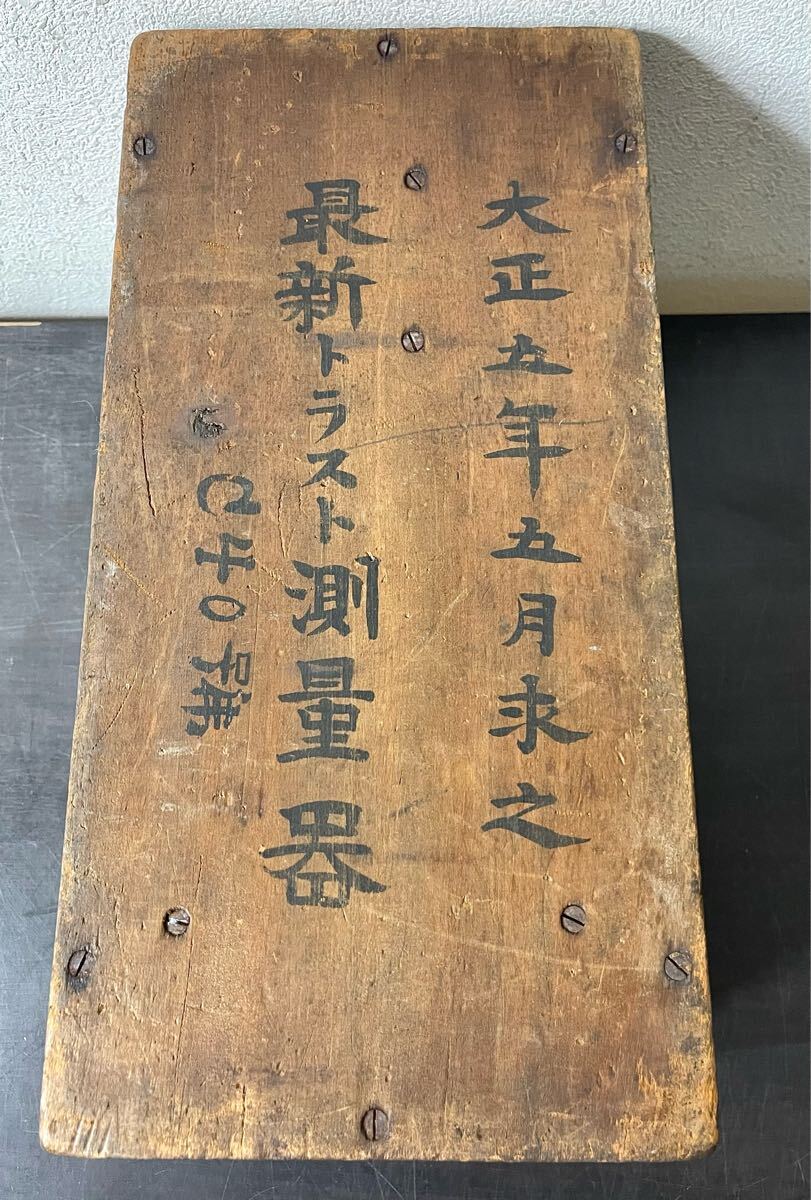 大正五年五月求之
最新トラスト測量器
240號